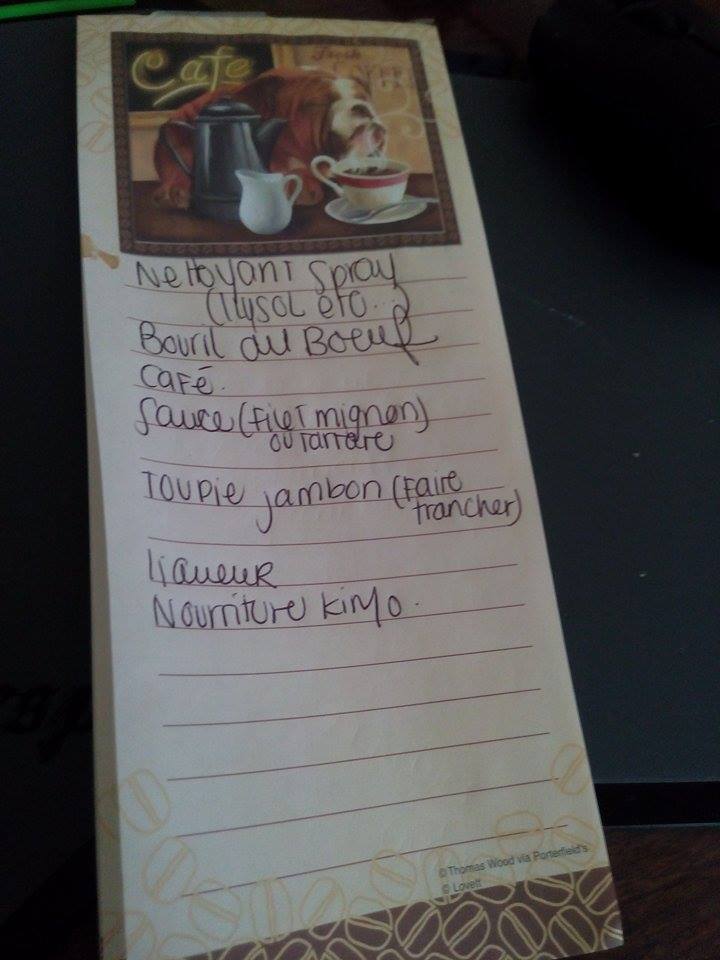 Cafe
Fresh
Nettoyant Spray
(lysol etc...)
Bouril du Boeuf
Café.
Sauce (Filet mignon)
ou Tartare
Toupie jambon (Faire
trancher)
Liqueur
Nourriture Kimo.
©Thomas Wood via Porterfield's
© Lovett